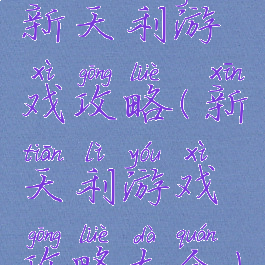 新天利游
xì gōng lüè xīn
戏攻略(新
tiān lì yóu xì
天利游戏
gōng lüè dà quán
攻略大全)